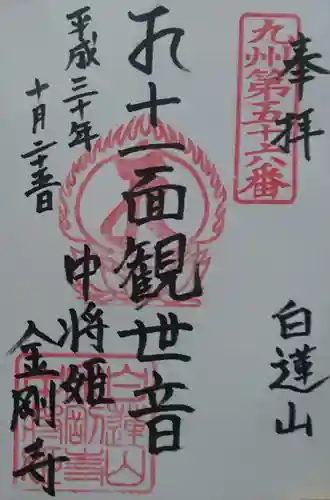 奉拝
九州第五十六番
白蓮山
十一面観世音
中将姫
平成三十年
十月二十五日
金剛寺
白蓮山
金剛寺